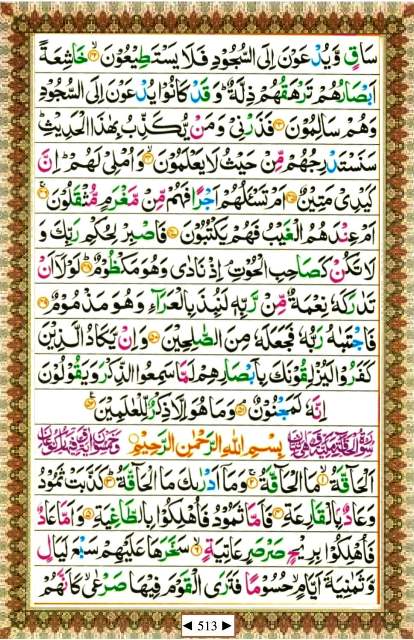 سَاقٍ وَّيُدْعَوْنَ اِلَى السُّجُوْدِ فَلَا يَسْتَطِيْعُوْنَ ۙ۴۲ خَاشِعَةً
اَبْصَارُهُمْ تَرْهَقُهُمْ ذِلَّةٌ ؕ وَقَدْ كَانُوْا يُدْعَوْنَ اِلَى السُّجُوْدِ
وَهُمْ سَالِمُوْنَ ۴۳ فَذَرْنِيْ وَمَنْ يُّكَذِّبُ بِهٰذَا الْحَدِيْثِ ؕ
سَنَسْتَدْرِجُهُمْ مِّنْ حَيْثُ لَا يَعْلَمُوْنَ ۙ۴۴ وَاُمْلِيْ لَهُمْ ؕ اِنَّ
كَيْدِيْ مَتِيْنٌ ۴۵ اَمْ تَسْئَلُهُمْ اَجْرًا فَهُمْ مِّنْ مَّغْرَمٍ مُّثْقَلُوْنَ ۚ۴۶
اَمْ عِنْدَهُمُ الْغَيْبُ فَهُمْ يَكْتُبُوْنَ ۴۷ فَاصْبِرْ لِحُكْمِ رَبِّكَ وَ
لَا تَكُنْ كَصَاحِبِ الْحُوْتِ ۘ اِذْ نَادٰى وَهُوَ مَكْظُوْمٌ ؕ۴۸ لَوْلَا اَنْ
تَدٰرَكَهٗ نِعْمَةٌ مِّنْ رَّبِّهٖ لَنُبِذَ بِالْعَرَآءِ وَهُوَ مَذْمُوْمٌ ۴۹
فَاجْتَبٰهُ رَبُّهٗ فَجَعَلَهٗ مِنَ الصّٰلِحِيْنَ ۵۰ وَاِنْ يَّكَادُ الَّذِيْنَ
كَفَرُوْا لَيُزْلِقُوْنَكَ بِاَبْصَارِهِمْ لَمَّا سَمِعُوا الذِّكْرَ وَيَقُوْلُوْنَ
اِنَّهٗ لَمَجْنُوْنٌ ۘ۵۱ وَمَا هُوَ اِلَّا ذِكْرٌ لِّلْعٰلَمِيْنَ ۵۲
بِسْمِ اللّٰهِ الرَّحْمٰنِ الرَّحِيْمِ
اَلْحَآقَّةُ ۙ۱ مَا الْحَآقَّةُ ۚ۲ وَمَآ اَدْرٰىكَ مَا الْحَآقَّةُ ؕ۳ كَذَّبَتْ ثَمُوْدُ
وَعَادٌۢ بِالْقَارِعَةِ ۴ فَاَمَّا ثَمُوْدُ فَاُهْلِكُوْا بِالطَّاغِيَةِ ۵ وَاَمَّا عَادٌ
فَاُهْلِكُوْا بِرِيْحٍ صَرْصَرٍ عَاتِيَةٍ ۙ۶ سَخَّرَهَا عَلَيْهِمْ سَبْعَ لَيَالٍ
وَّثَمٰنِيَةَ اَيَّامٍ ۙ حُسُوْمًا فَتَرَى الْقَوْمَ فِيْهَا صَرْعٰى ۙ كَاَنَّهُمْ
◄ 513 ►